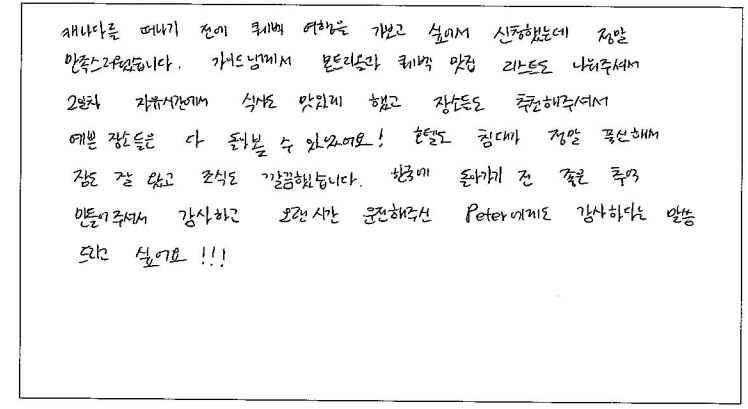 캐나다를 떠나기 전에 퀘벡 여행을 가보고 싶어서 신청했는데 정말
만족스러웠습니다. 가이드님께서 몬트리올과 퀘벡 맛집 리스트도 나눠주셔서
2일차 자유시간에서 식사도 맛있게 했고 장소들도 추천해주셔서
예쁜 장소들은 다 돌아볼 수 있었어요! 호텔도 침대가 정말 푹신해서
잠도 잘 왔고 조식도 깔끔했습니다. 한국에 돌아가기 전 좋은 추억
만들어주셔서 감사하고 오랜시간 운전해주신 Peter에게도 감사하다는 말씀
드리고 싶어요!!!